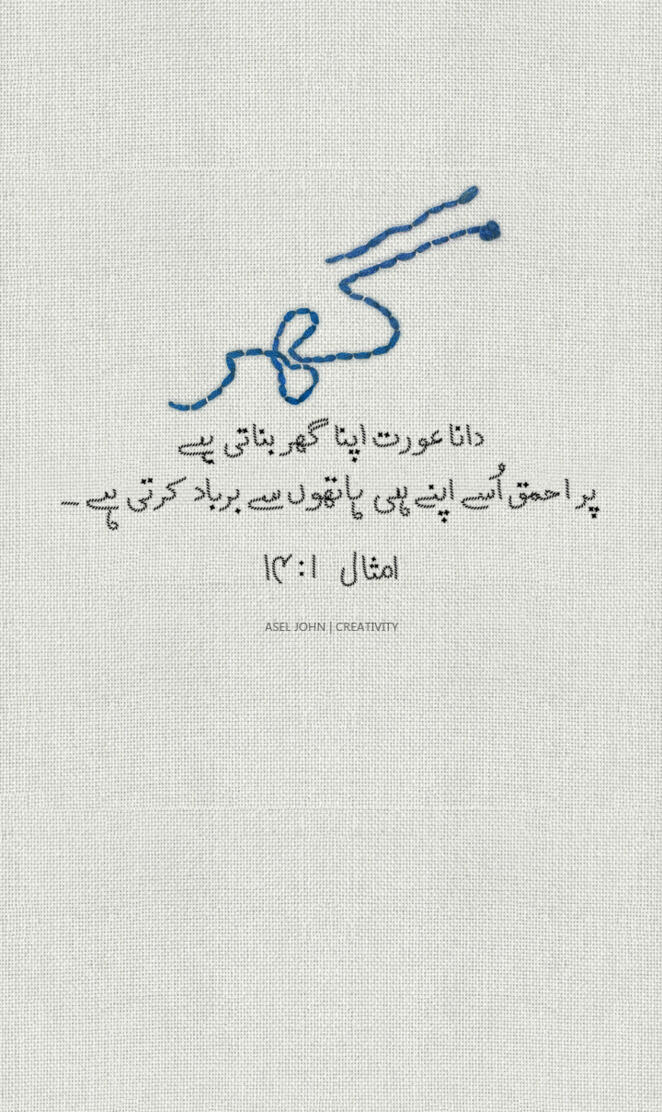 گھر
دانا عورت اپنا گھر بناتی ہے
پر احمق اُسے اپنے ہی ہاتھوں سے برباد کرتی ہے ۔
امثال ۱۴:۱
ASEL JOHN | CREATIVITY